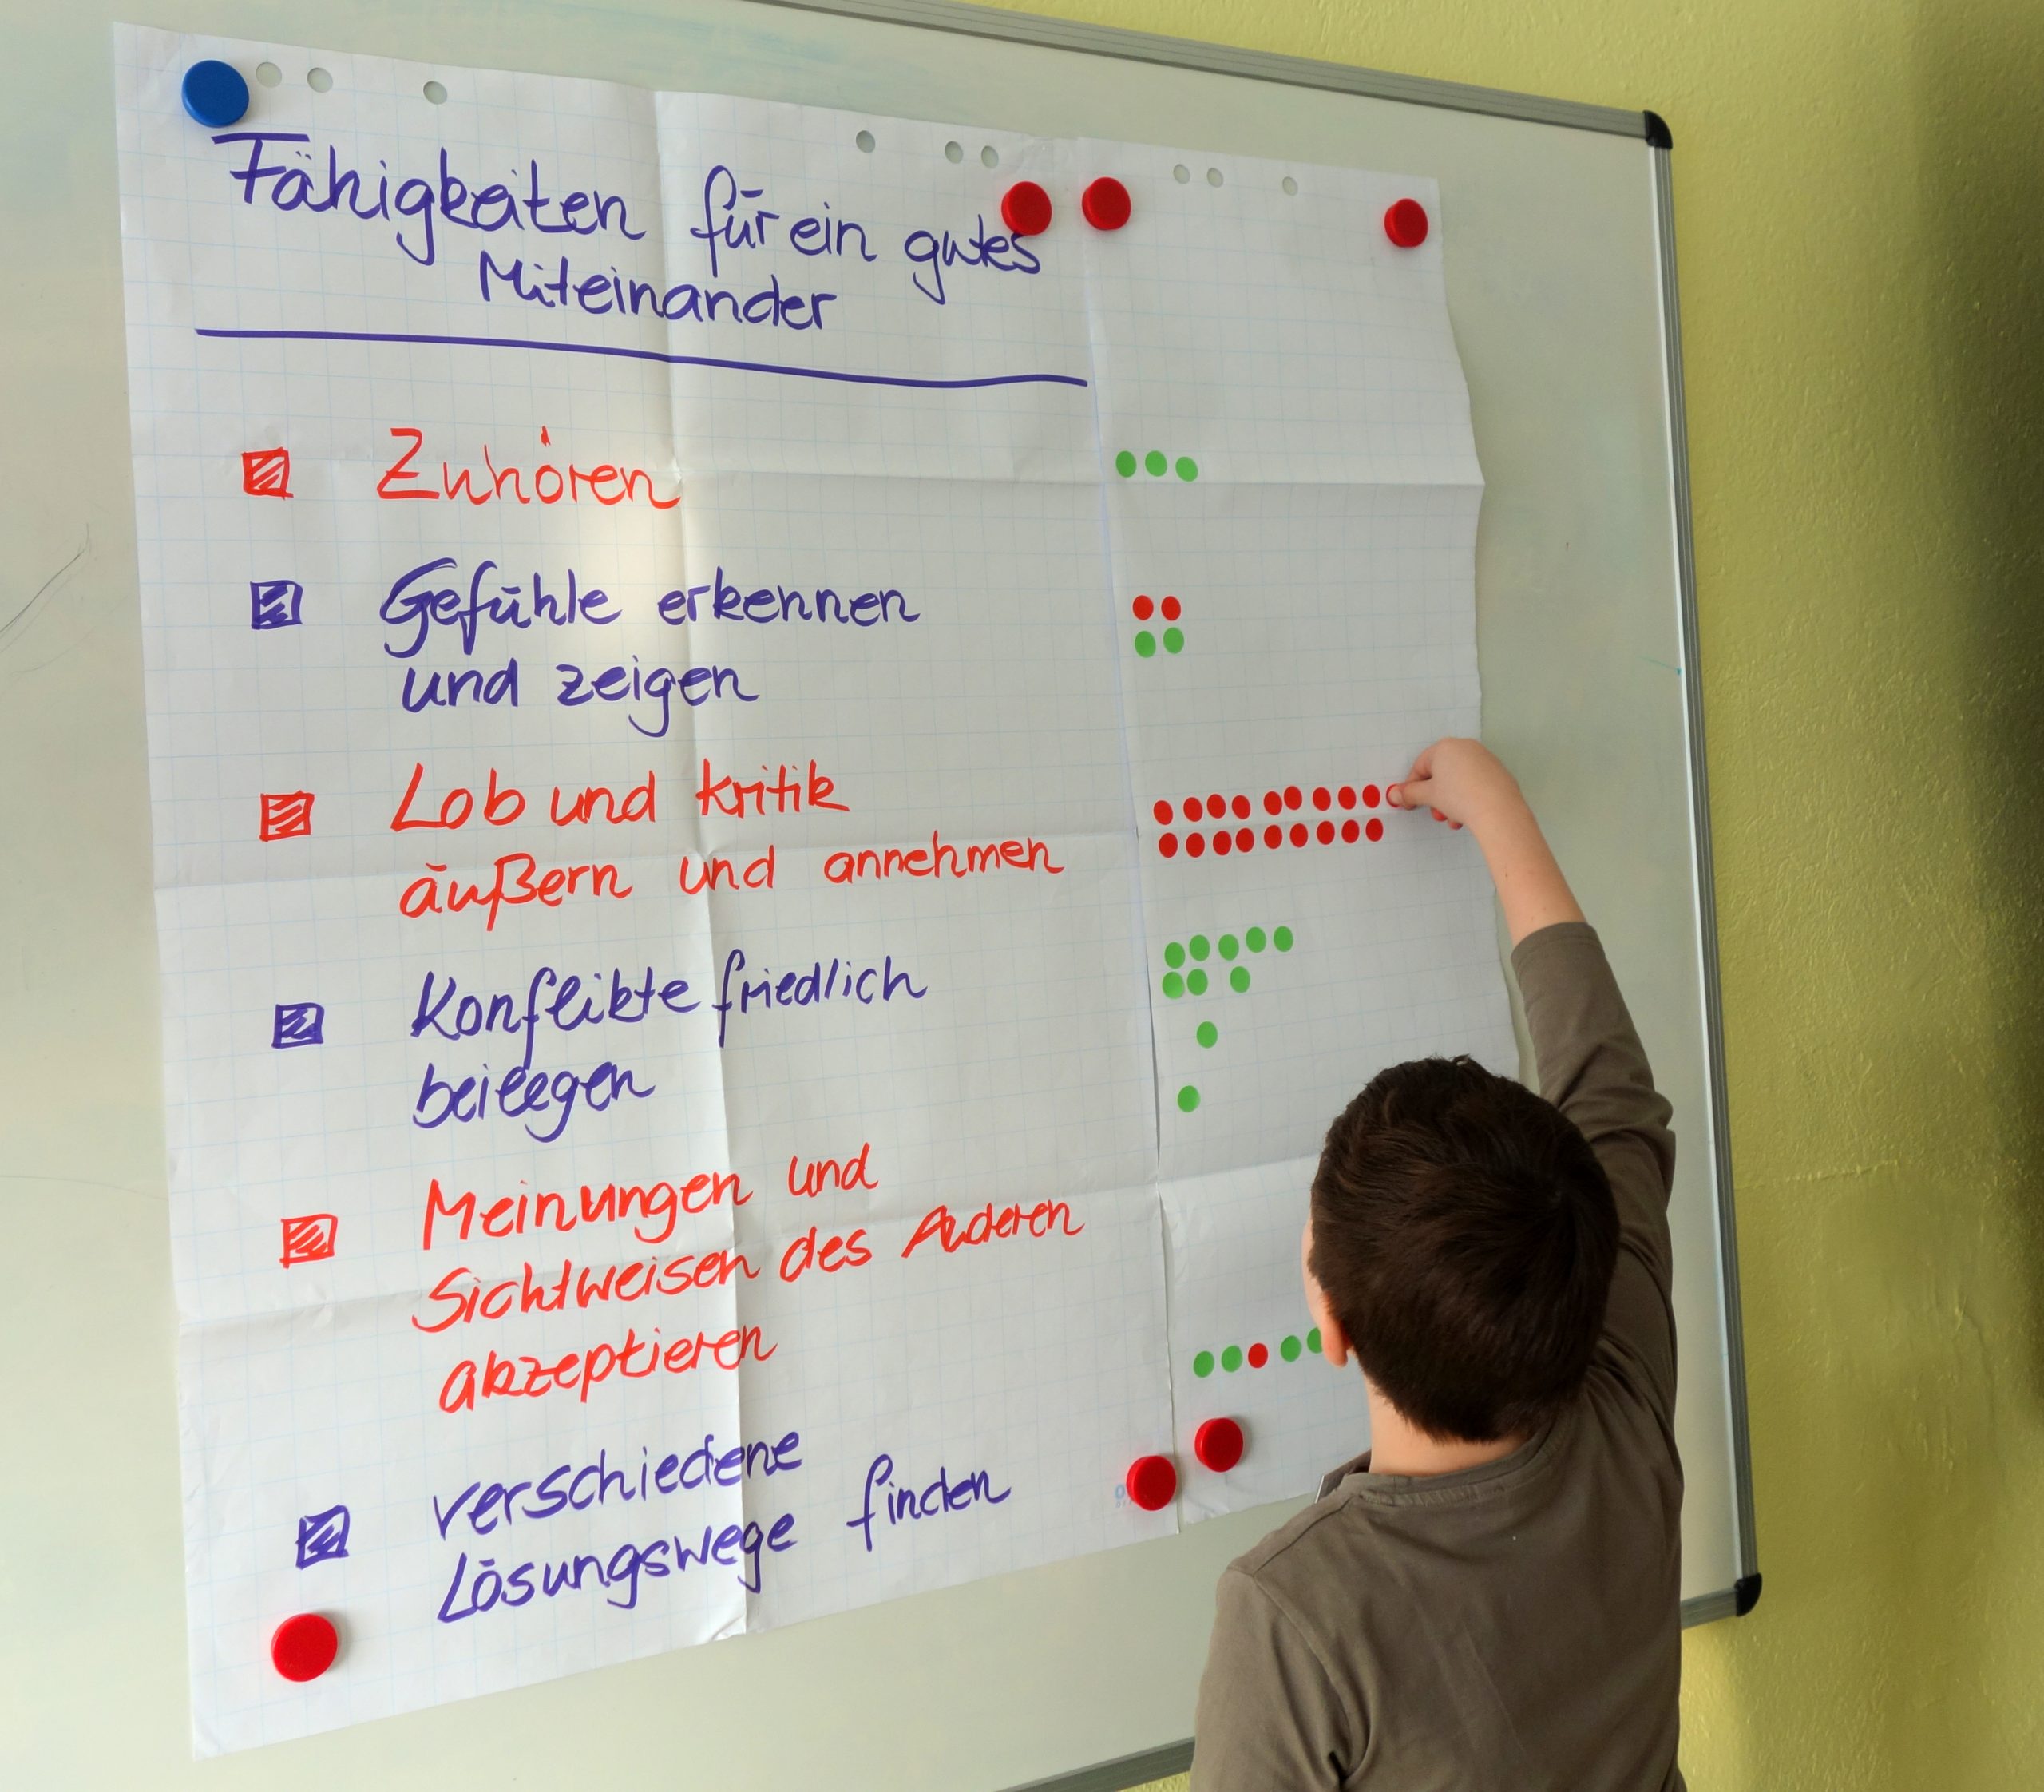 Fähigkeiten für ein gutes
Miteinander
Zuhören
Gefühle erkennen
und zeigen
Lob und Kritik
äußern und annehmen
Konflikte friedlich
beilegen
Meinungen und
Sichtweisen des Anderen
akzeptieren
verschiedene
Lösungswege finden